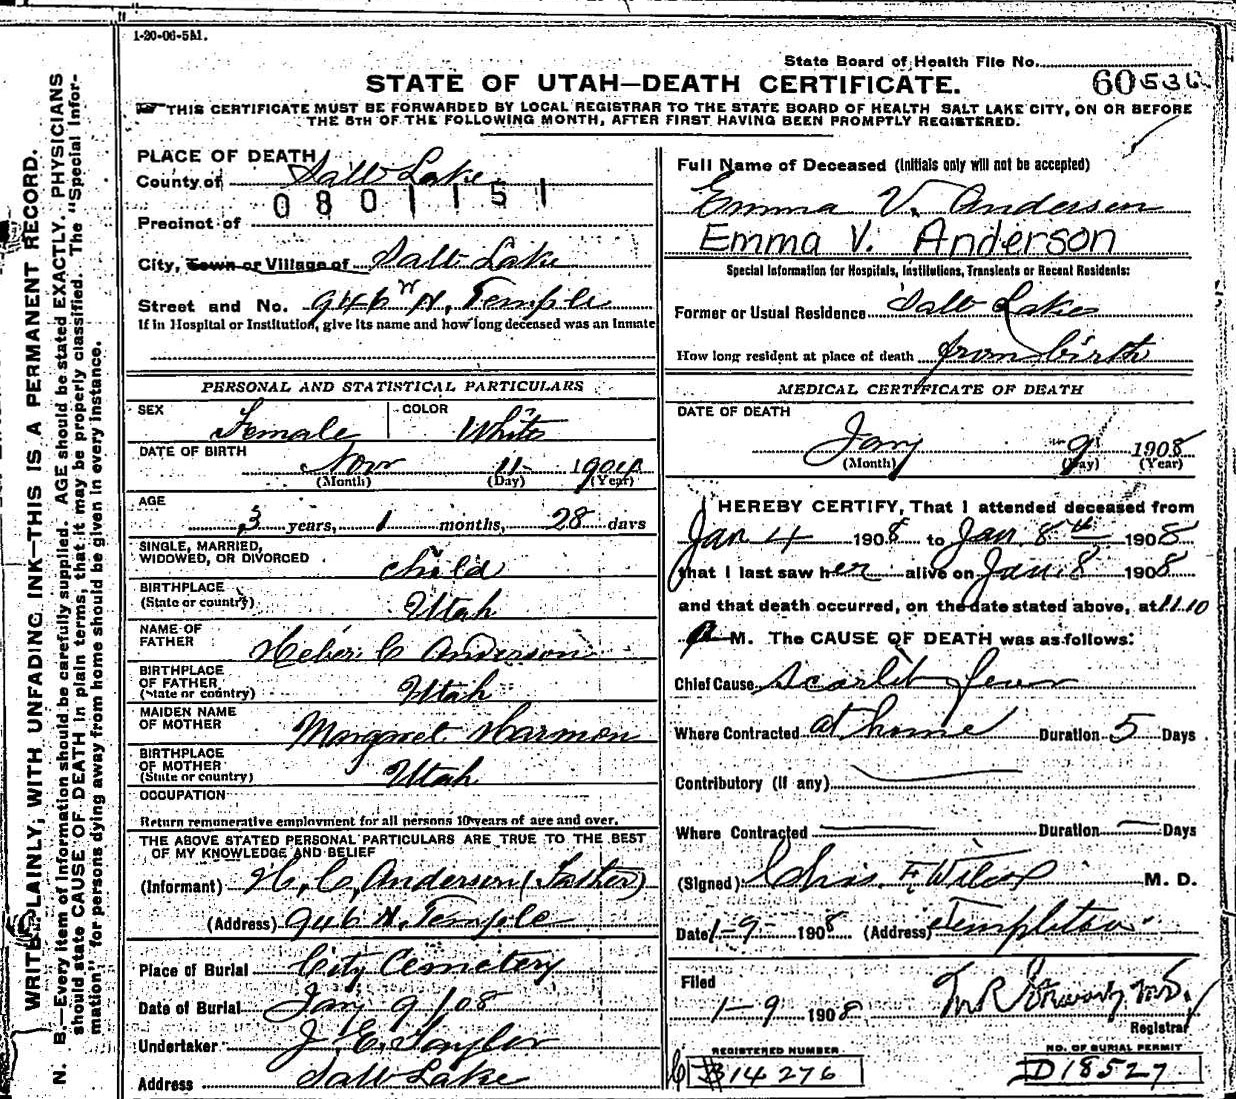 1-20-06-5M.
State Board of Health File No.
STATE OF UTAH—DEATH CERTIFICATE.
THIS CERTIFICATE MUST BE FORWARDED BY LOCAL REGISTRAR TO THE STATE BOARD OF HEALTH SALT LAKE CITY, ON OR BEFORE
THE 5TH OF THE FOLLOWING MONTH, AFTER FIRST HAVING BEEN PROMPTLY REGISTERED.
WRITE PLAINLY, WITH UNFADING INK—THIS IS A PERMANENT RECORD.
N. B.—Every item of information should be carefully supplied. AGE should be stated EXACTLY. PHYSICIANS
should state CAUSE OF DEATH in plain terms, that it may be properly classified. The "Special Infor-
mation" for persons dying away from home should be given in every instance.
PLACE OF DEATH
County of Salt Lake
0801151
Precinct of
City, Town or Village of Salt Lake
Street and No. 946 W N. Temple
If in Hospital or Institution, give its name and how long deceased was an inmate
PERSONAL AND STATISTICAL PARTICULARS
SEX Female COLOR White
DATE OF BIRTH
Nov 11 1904
(Month) (Day) (Year)
AGE
3 years, 1 months, 28 days
SINGLE, MARRIED,
WIDOWED, OR DIVORCED child
BIRTHPLACE
(State or country) Utah
NAME OF
FATHER Heber C Anderson
BIRTHPLACE
OF FATHER
(State or country) Utah
MAIDEN NAME
OF MOTHER Margaret Harmon
BIRTHPLACE
OF MOTHER
(State or country) Utah
OCCUPATION
Return remunerative employment for all persons 10 years of age and over.
THE ABOVE STATED PERSONAL PARTICULARS ARE TRUE TO THE BEST
OF MY KNOWLEDGE AND BELIEF
(Informant) H. C. Anderson (Father)
(Address) 946 N. Temple
Place of Burial City Cemetery
Date of Burial Jany 9/08
Undertaker J. E. Taylor
Address Salt Lake
Full Name of Deceased (Initials only will not be accepted)
Emma V. Anderson
Emma V. Anderson
Special Information for Hospitals, Institutions, Transients or Recent Residents:
Former or Usual Residence Salt Lake
How long resident at place of death from birth
MEDICAL CERTIFICATE OF DEATH
DATE OF DEATH
Jany 9 1908
(Month) (Day) (Year)
I HEREBY CERTIFY, That I attended deceased from
Jan 4 1908 to Jan. 8th 1908
that I last saw her alive on Jan. 8 1908
and that death occurred, on the date stated above, at 11.10
M. The CAUSE OF DEATH was as follows:
Chief Cause Scarlet fever
Where Contracted at home Duration 5 Days
Contributory (If any)
Where Contracted Duration Days
(Signed) Chas. F Wilcox M. D.
Date 1-9- 1908 (Address) Templeton
Filed
1-9 1908
Registrar
REGISTERED NUMBER
B14276
NO. OF BURIAL PERMIT
D18527